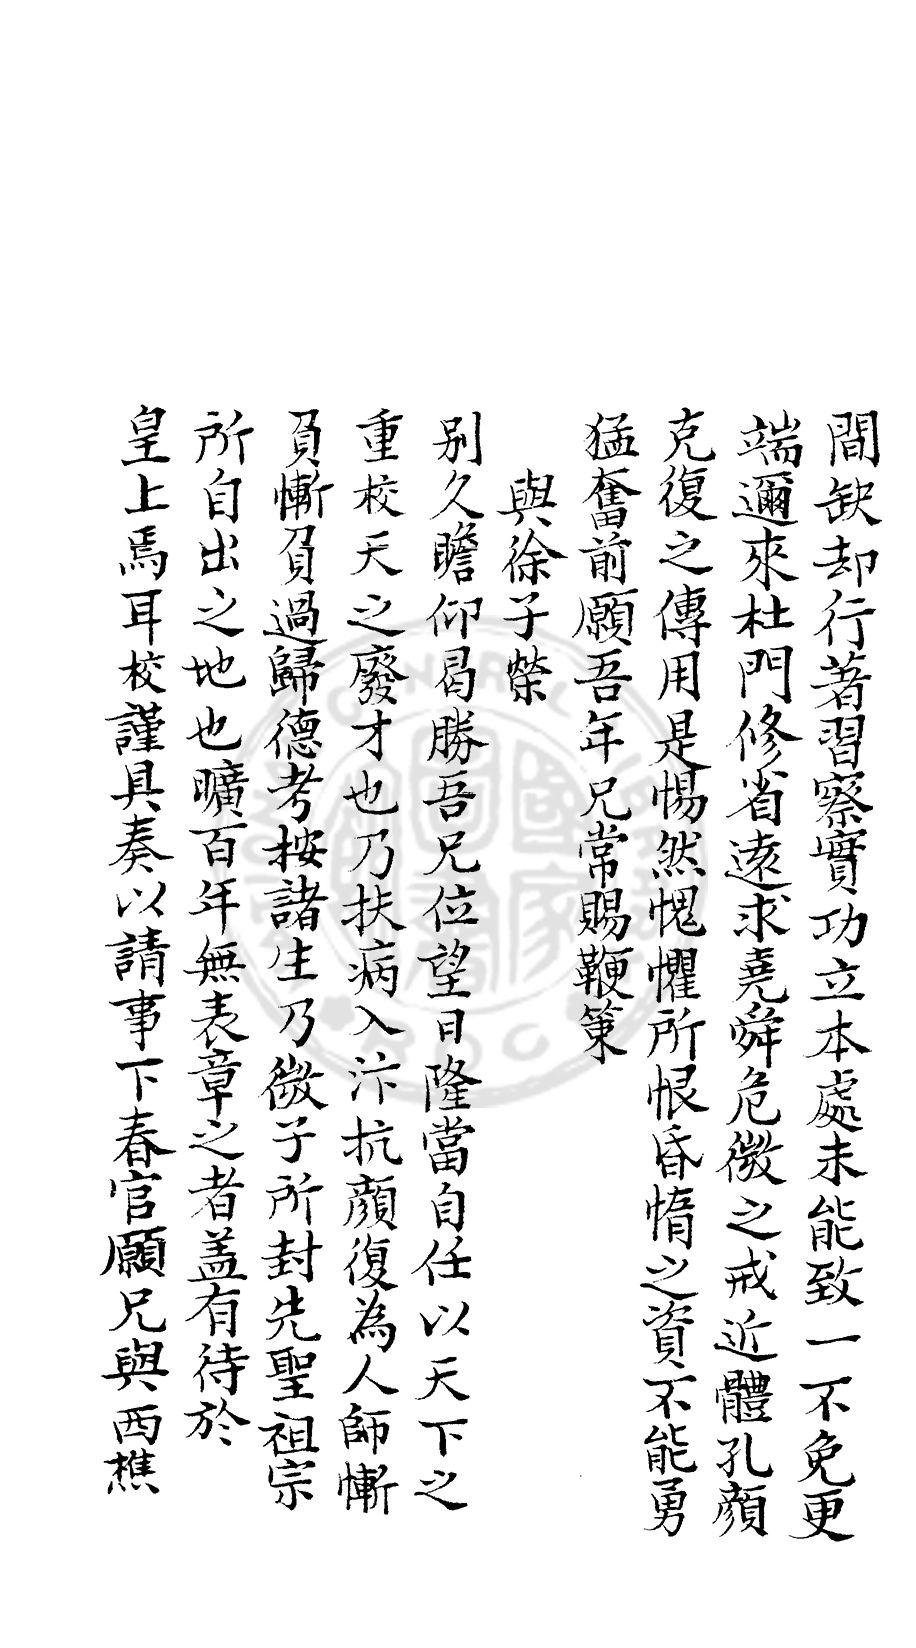 間缺却行著習察實功立本處未能致一不免更
端邇來杜門修省遠求堯舜危微之戒近體孔顔
克復之傳用是惕然愧懼所恨昏惰之資不能勇
猛奮前願吾年兄常賜鞭策
與徐子榮
別久瞻仰曷勝吾兄位望日隆當自任以天下之
重校天之廢才也乃扶病入汴抗顔復為人師慚
負慚負過歸德考按諸生乃微子所封先聖祖宗
所自出之地也曠百年無表章之者盖有待於
皇上焉耳校謹具奏以請事下春官願兄與西樵